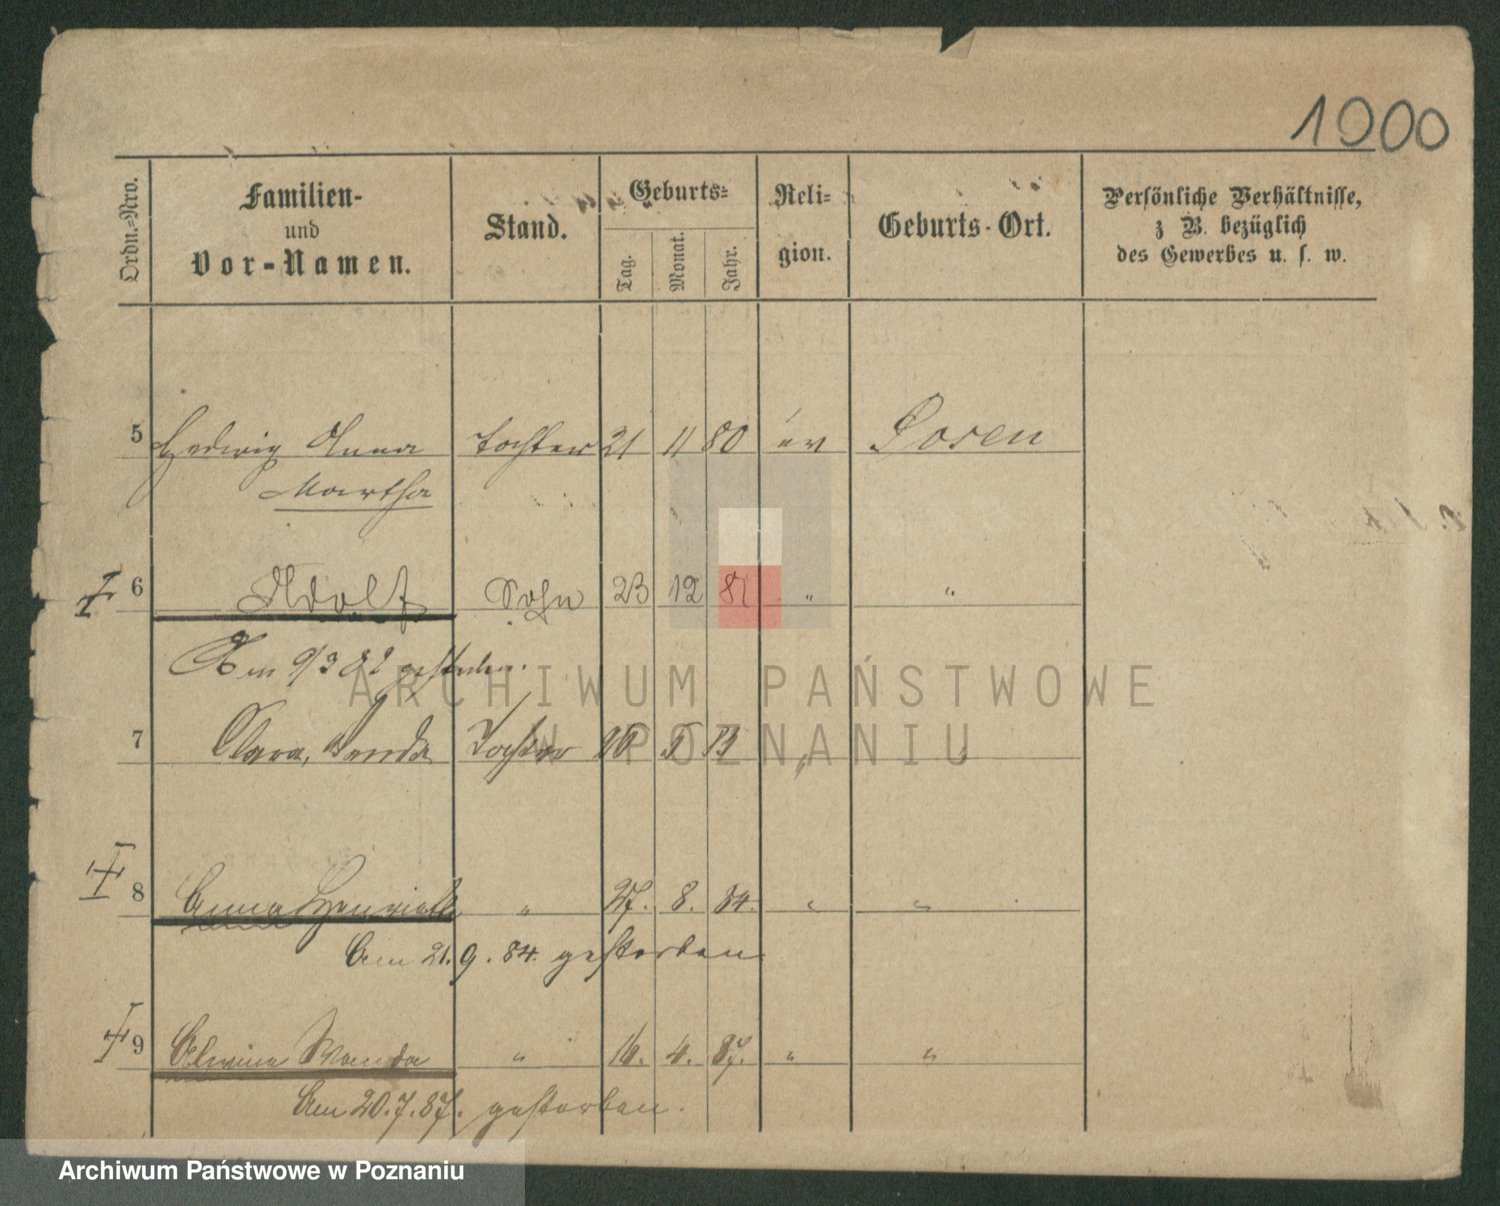 1000
Ordn.=Nro. Familien- und Vor-Namen. Stand. Geburts= Tag. Monat. Jahr. Reli- gion. Geburts-Ort. Persönliche Verhältnisse, z B. bezüglich des Gewerbes u. s. w.
5 Hedwig Anna Tochter 21 11 80 ev Posen
Martha
6 Adolf Sohn 23 12 81 " "
Am 9/3 82 gestorben.
ARCHIWUM PAŃSTWOWE
7 Clara, Tochter
W POZNANIU
8 Anna Henriette " 27. 8. 84. " "
Am 21. 9. 84. gestorben
9 Alwine Wanda " 16. 4. 87. " "
Am 20. 7. 87. gestorben.
Archiwum Państwowe w Poznaniu